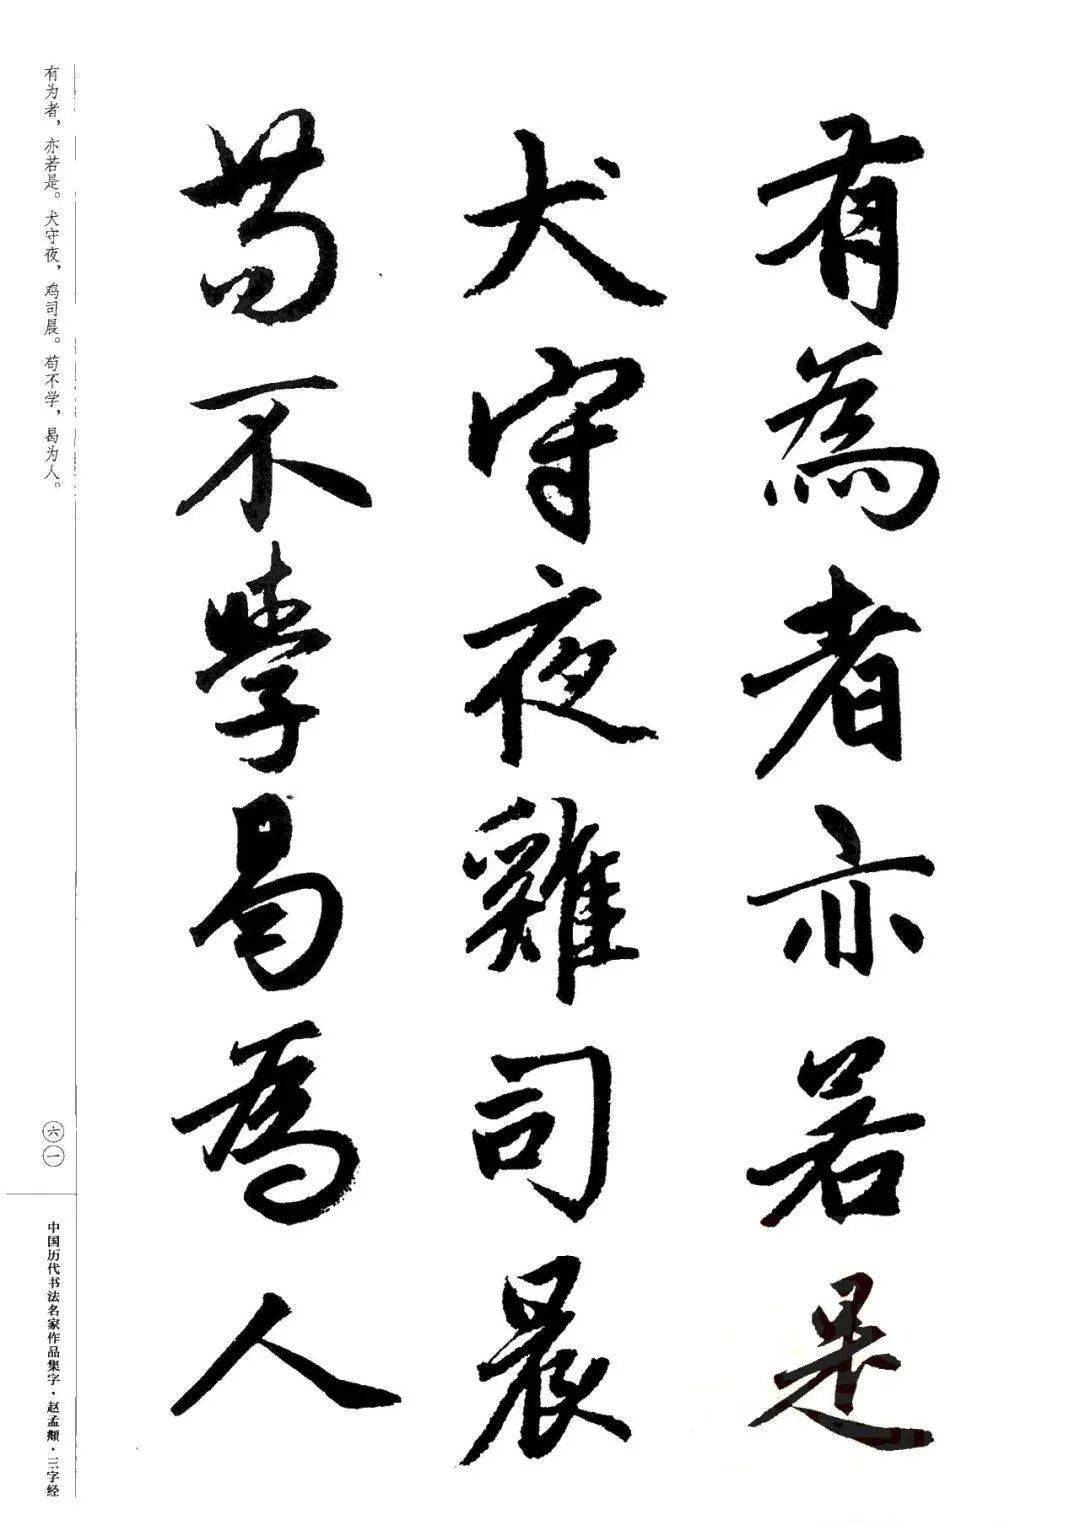 有為者亦若是
犬守夜雞司晨
苟不學曷為人
有为者，亦若是。犬守夜，鸡司晨。苟不学，曷为人。
六一
中国历代书法名家作品集字·赵孟頫·三字经